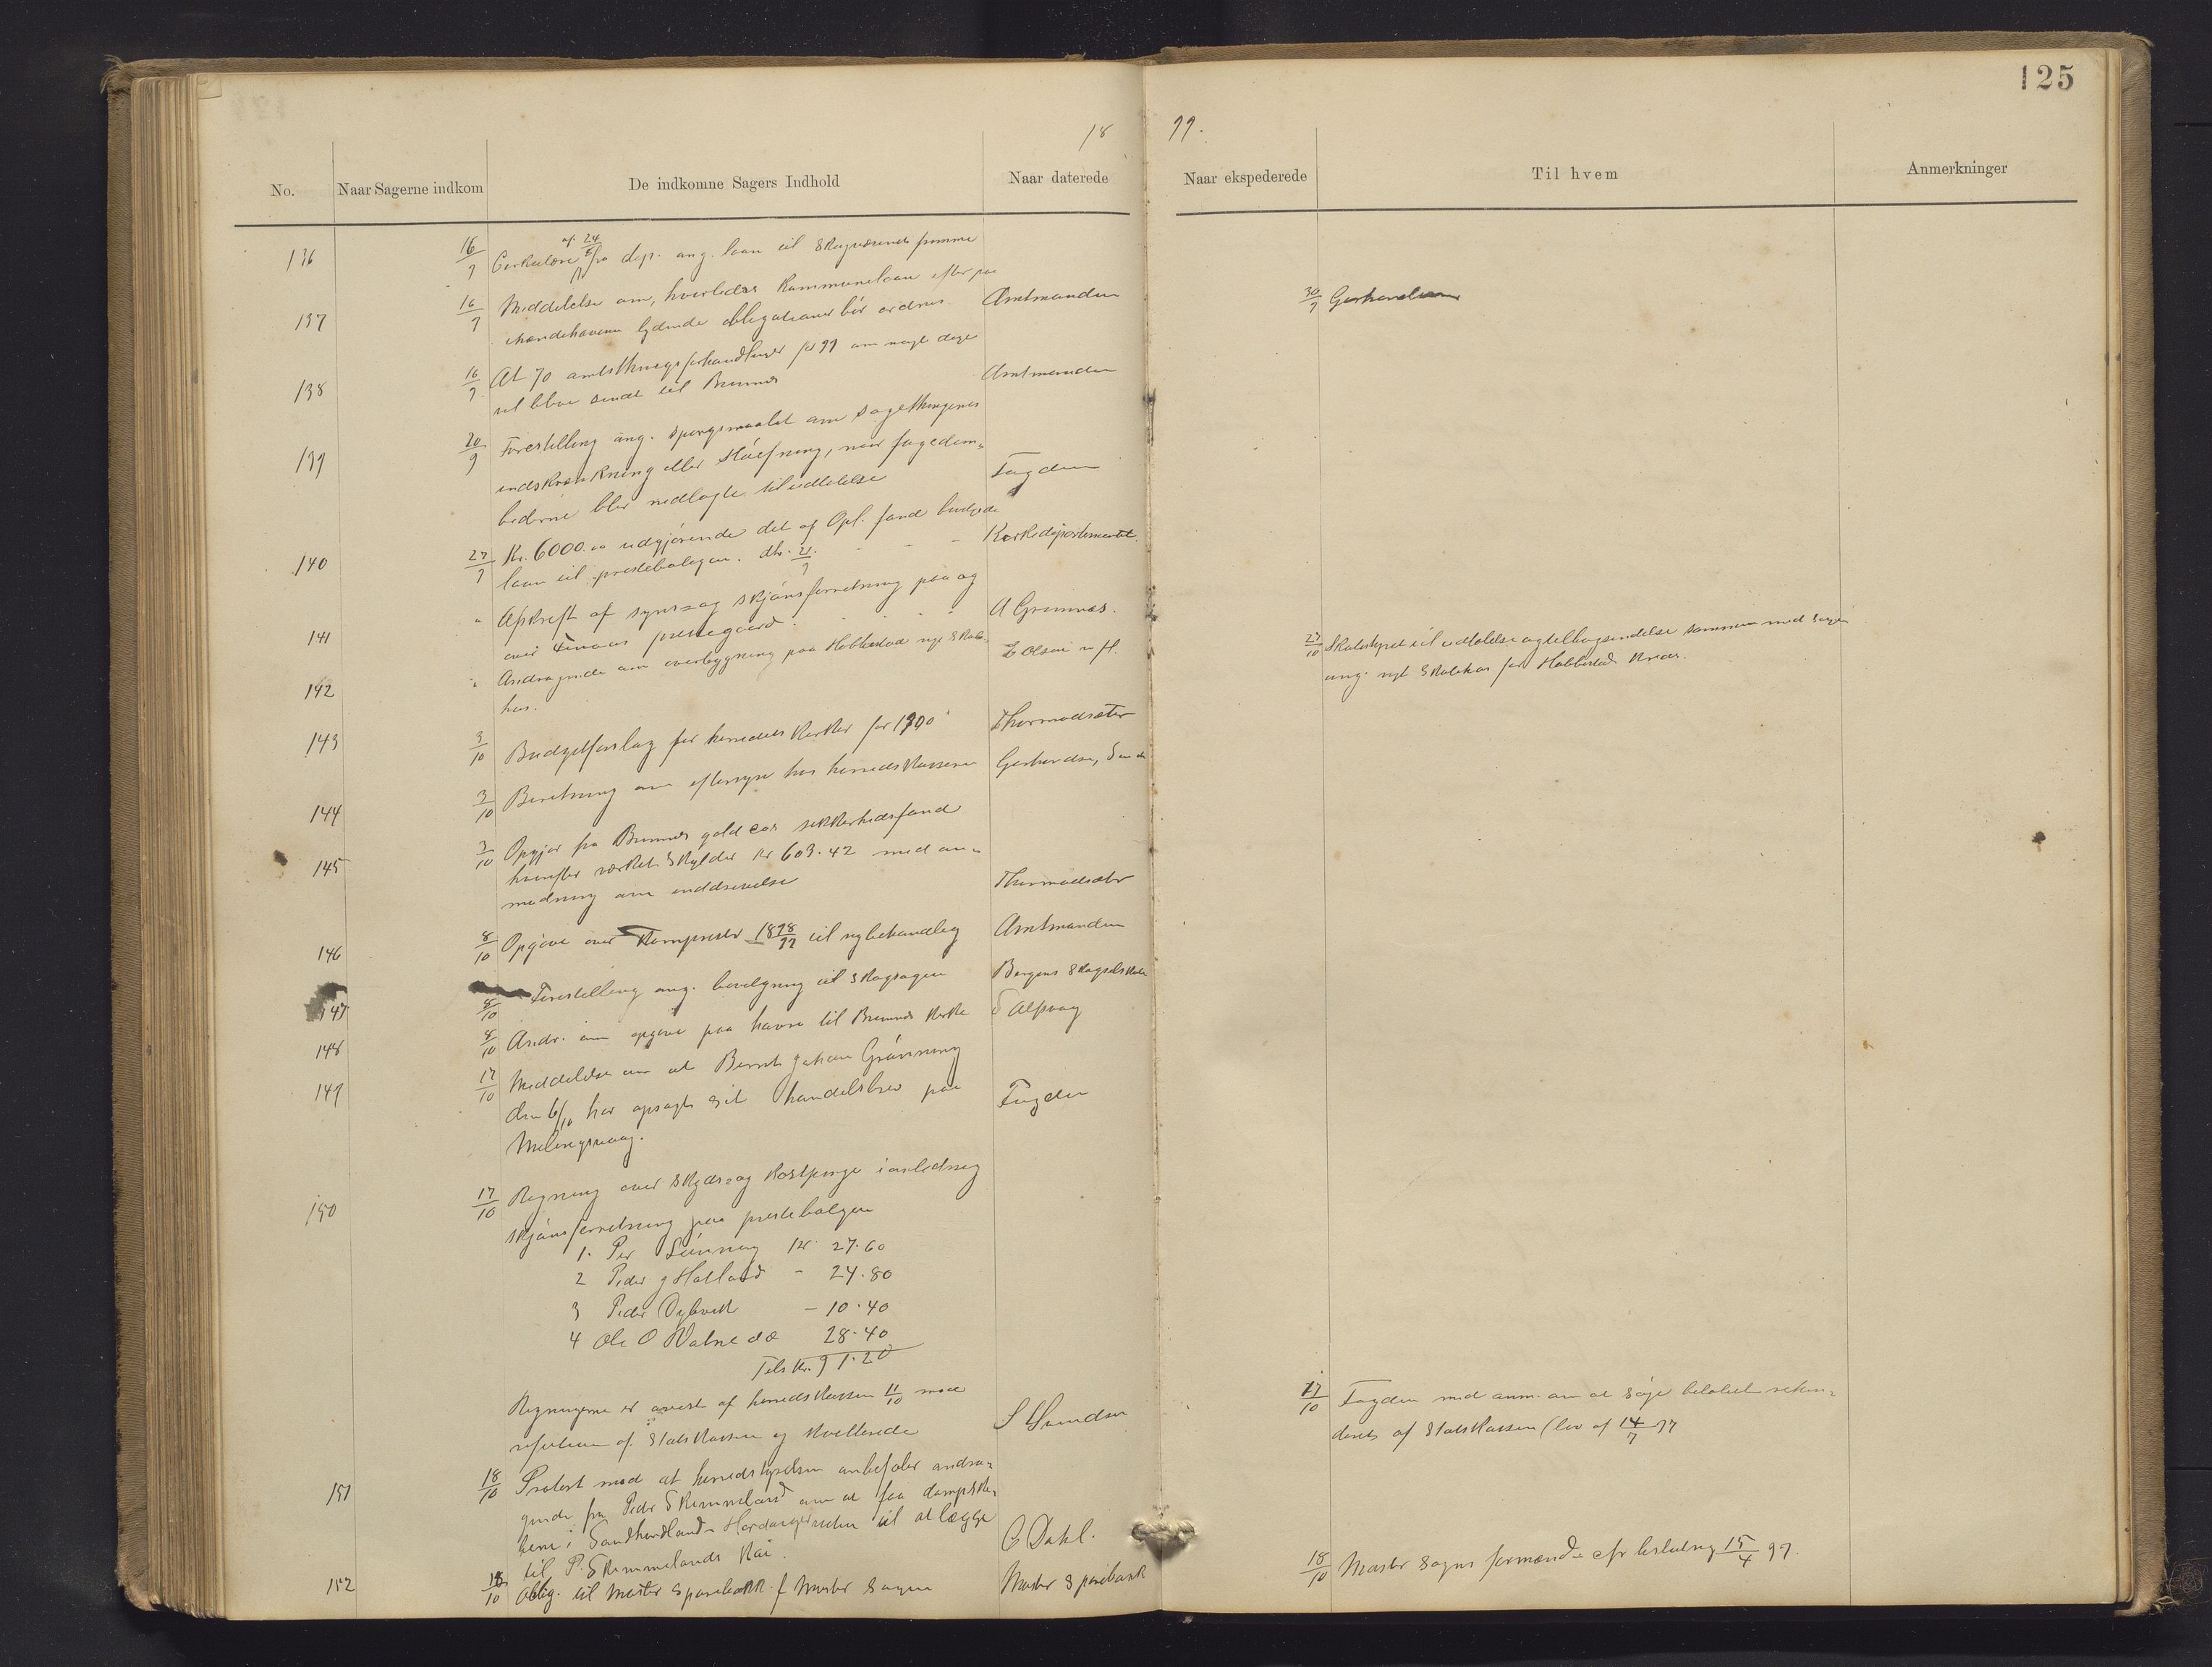 125
18 99.
No. Naar Sagerne indkom De indkomne Sagers Indhold Naar daterede Naar ekspederede Til hvem Anmerkninger
136 16/9 Cirkulære af 24/8 fra dep. ang. laan til Skogvæsenets fremme
137 16/9 Meddelelse om, hvorledes Kommunelaan efter paa
ihændehaveren lydende obligationer bör ordnes. Amtmanden 30/9
138 16/9 At 70 amtsthingsforhandlinger for 99 om nogle dage
vil blive sendt til Bremnes Amtmanden
139 20/9 Forestilling ang. spörgsmaalet om sagethingenes
indskrænkning eller Hævning, naar fogedem=
bederne blir nedlagte til udtalelse Fogden
140 27/9 Kr. 6000.00 udgjörende det af Opl. fond
laan til prestebolegen. dtr. 21/9 Kirkedepartementet.
141 " Afskrift af syns= og skjönsforretning paa og
over Finaas prestegaard. A Grimnæs.
142 " Andragende om overbygning paa Hobbestad nye Skole-
hus. E Olsen m fl. 27/10 Skolestyret til udtalelse og tilbagesendelse sammen med sagen
ang. nyt Skolehus for Hobbestad Kreds.
143 3/10 Budgetforslag for herredets Kirker for 1900 Thormodsæter
144 3/10 Beretning om eftersyn hos herredskasseren
145 3/10 Opgjör fra Bremnes gold cos sikkerhedsfond
hvorefter værket Skylder Kr 603.42 med an=
modning om inddrivelse Thormodsæter
146 8/10 Opgave over 1898/99 til nybehandling Amtmanden
147 8/10 Forestilling ang. bevilgning til Skogsagen Bergens Skogselskab
148 8/10 Andr. om opgave paa havre til Bremnes Kirke S Alfsvaag
149 17/10 Meddelelse om at Bernt Johan Grönning
den 6/10 har opsagt sit handelsbrev paa
Melingsvaag. Fogden
150 17/10 Regning over Skyds= og Kostpenge i anledning
skjönsforretning paa prestebolegen
1. Per Lönning Kr. 27.60
2 Peder J Halland - 24.80
3 Peder Dybvik - 10.40
4 Ole O 28.40
Tils Kr. 91.20
Regningerne er anvist af herredskassen 11/10 mod
refusion af Statskassen og Kvitterede S Svendsen
17/10 Fogden med anm. om at söge belöbet refun=
deret af Statskassen (lov af 14/7 97
151 18/10 Protest mod at herredstyrelsen anbefaler andra=
gende fra Peder Skimmeland om at faa dampski=
bene i Sandhordland-Hardangerruten til at lægge
til P. Skimmelands Kai. O Dahl.
152 18/10 Oblig. til Moster Sparebank f Moster Sogn Moster Sparebank 18/10 Moster Sogns formænd efr beslutning 15/4 97.